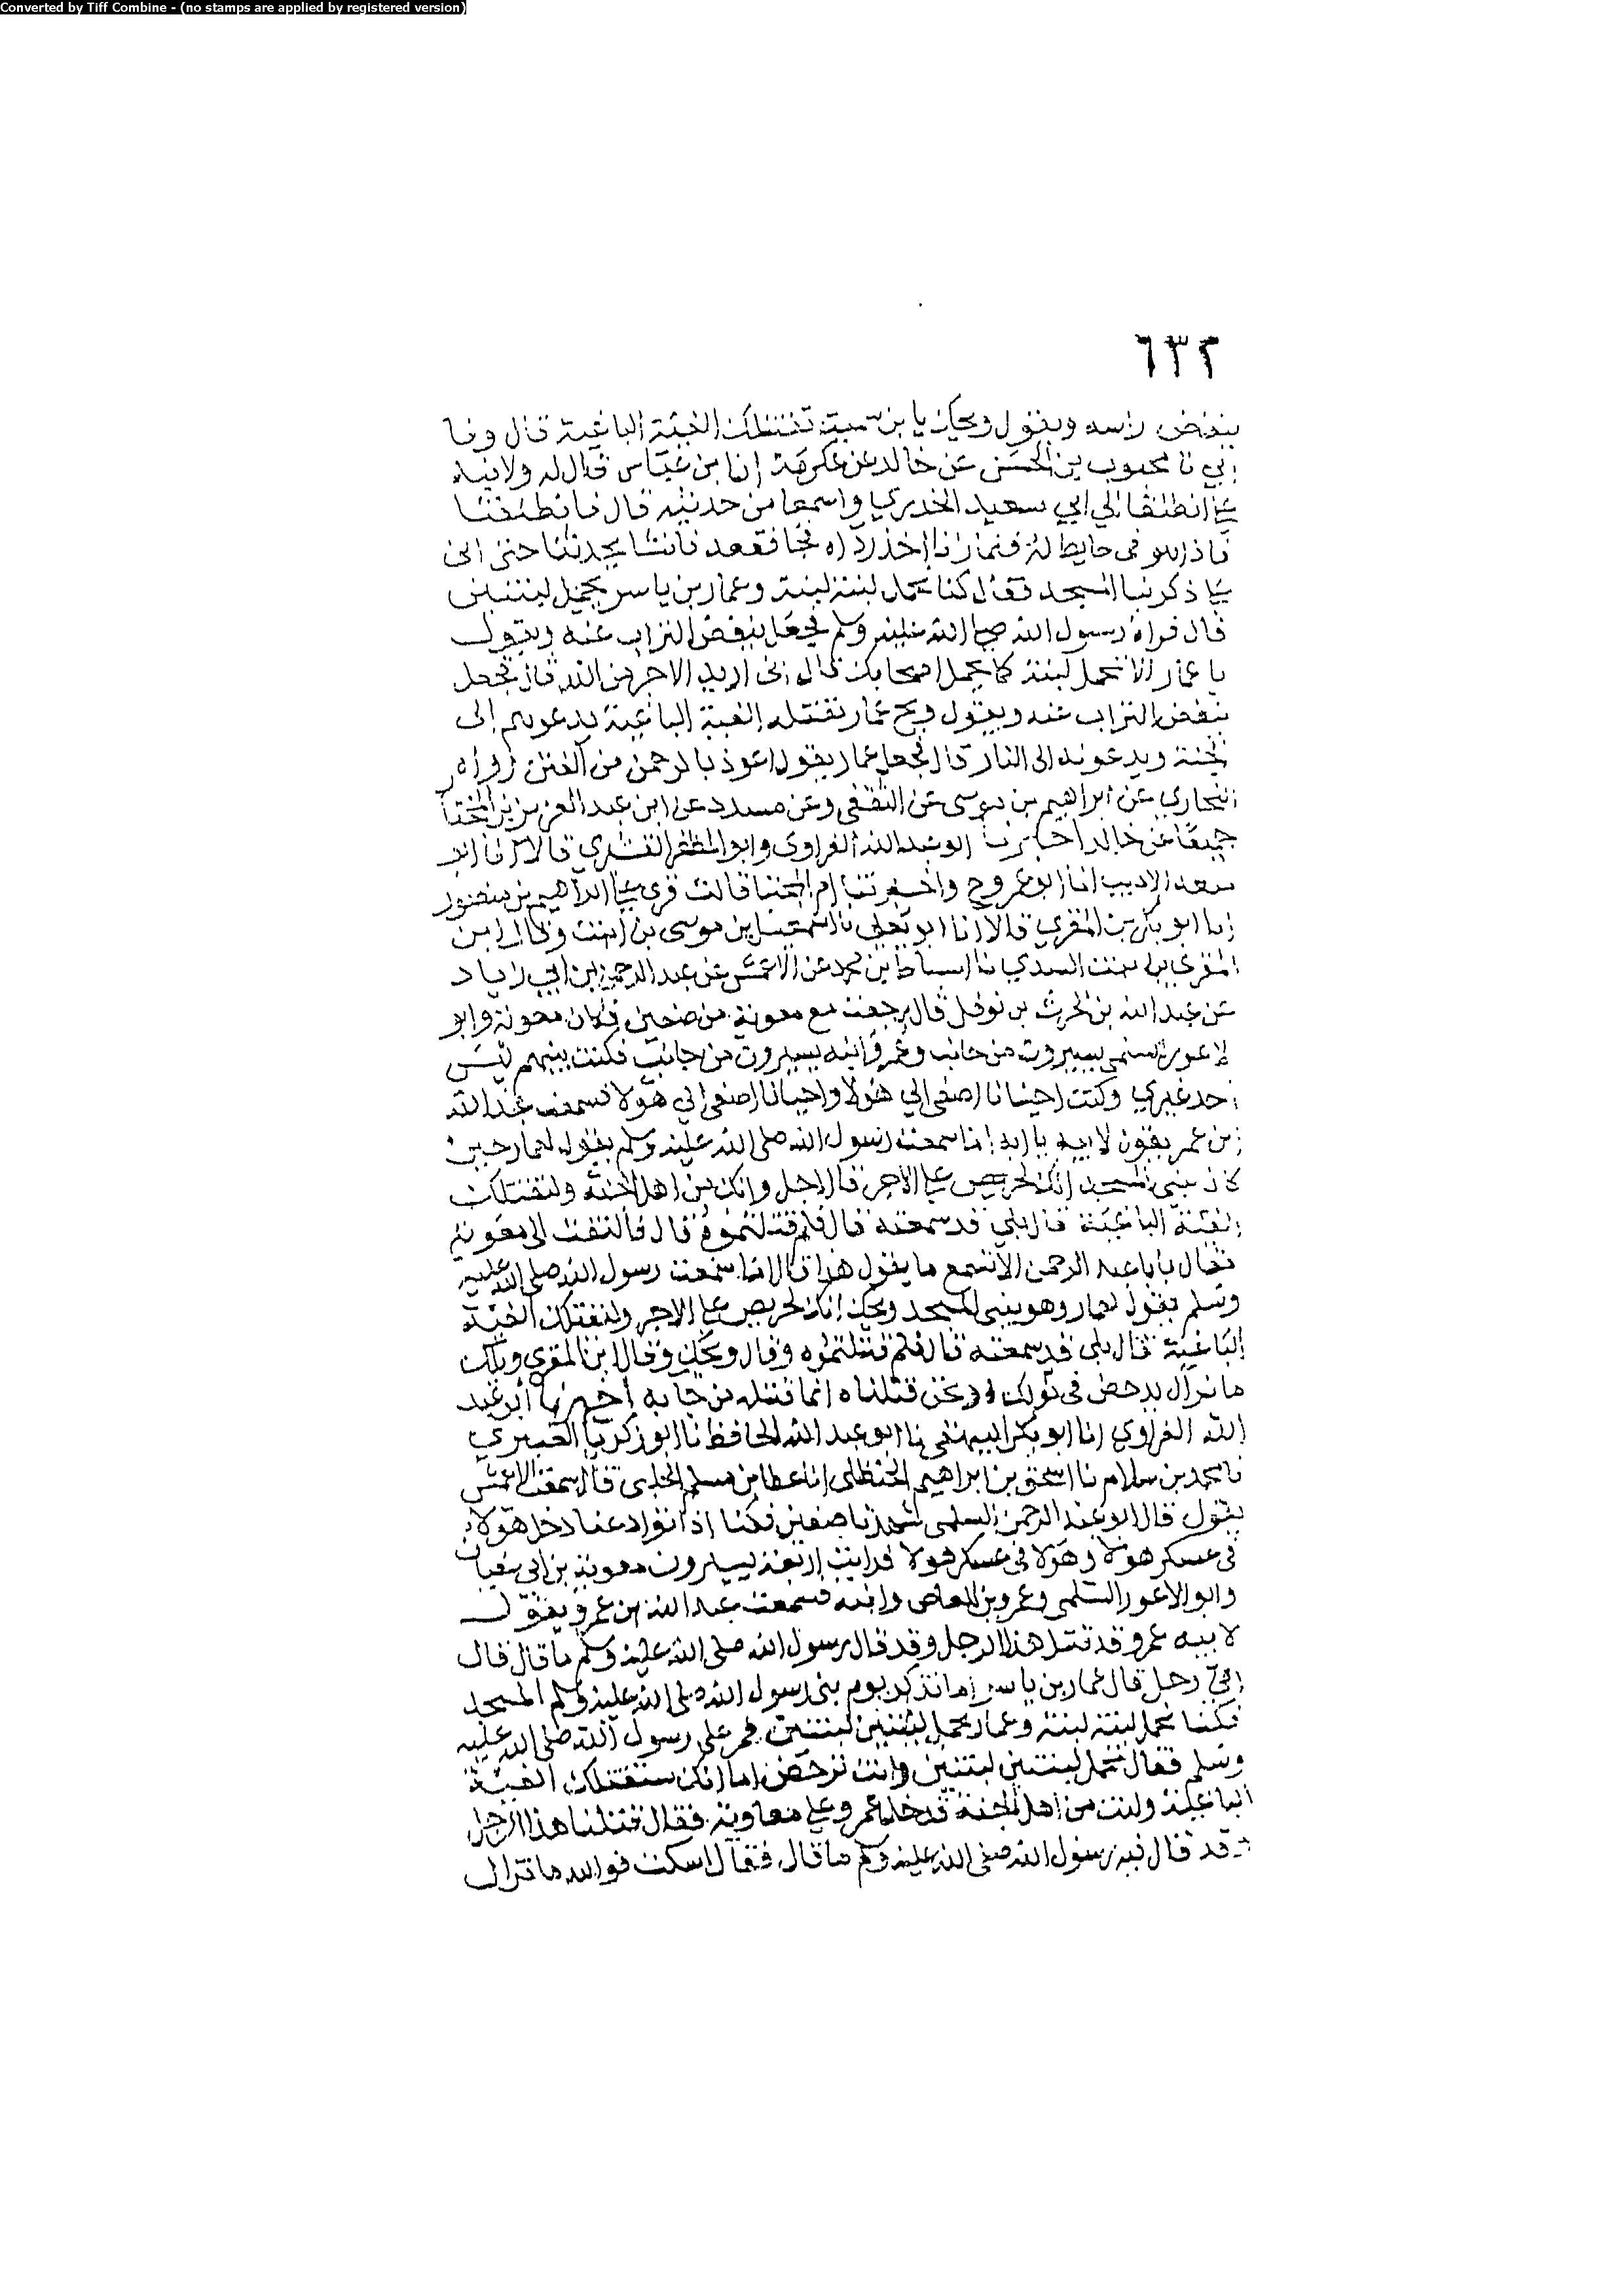 Converted by Tiff Combine - (no stamps are applied by registered version)
٦٣٢
ينفض راسه ويقول ويحك يا بن سمية تقتلك الفئة الباغية قال ونا
ابي نا محبوب بن الحسن عن خالد عن عكرمة ان ابن عباس قال له ولابنه
علي انطلقا الي ابي سعيد الخدري واسمعا من حديثه قال فانطلقنا
فاذا هو في حايط له فلما رانا اخذ رداه فجا فقعد فانشا يحدثنا حتى اتى
علي ذكر بنا المسجد فقال كنا نحمل لبنة لبنة وعمار بن ياسر يحمل لبنتين
قال فراه رسول الله صلى الله عليه وسلم فجعل ينفض التراب عنه ويقول
يا عمار الا تحمل لبنة كما يحمل اصحابك قال انى اريد الاجر من الله قال فجعل
ينفض التراب عنه ويقول ويح عمار تقتله الفئة الباغية يدعوهم الى
الجنة ويدعونه الى النار قال فجعل عمار يقول اعوذ بالرحمن من الفتن رواه
البخاري عن ابراهيم بن موسى عن الثقفى وعن مسدد عن ابن عبد العزيز بن المختار
جميعا عن خالد اخبرنا ابو عبد الله الفراوى وابو المظفر القشري قالا انا ابو
سعد الاديب انا ابو عمرو ح واخبرتنا ام المجتبا قالت قرى علي ابراهيم بن منصور
انا ابو بكر بن المقري قالا انا ابو يعلى نا اسمعيل بن موسى بن بنت وقال ابن
المقرى بن بنت السدي نا اسباط بن محمد عن الاعمش عن عبد الرحمن بن ابي زياد
عن عبد الله بن الحرث بن نوفل قال رجعت مع معوية من صفين فكان معوية وابو
الاعور السلمى يسيرون من جانب وعمرو وابنه يسيرون من جانب فكنت بينهم ليس
احد غيري وكنت احيانا اصغى الي هولا واحيانا اصغى الي هولا فسمعت عبد الله
بن عمر يقول لابيه يا ابه اما سمعت رسول الله صلى الله عليه وسلم يقول لعمار حين
كان يبنى المسجد انك لحريص علي الاجر قال اجل وانك من اهل الجنة ولتقتلك
الفئة الباغية قال بلي قد سمعته قال فلم قتلتموه قال فالتفت الى معوية
فقال يا با عبد الرحمن الا تسمع ما يقول هذا قال اما سمعت رسول الله صلى الله عليه
وسلم يقول لعمار وهو يبنى المسجد ويحك انك لحريص علي الاجر ولتقتلك الفئة
الباغية قال بلى قد سمعته قال فلم قتلتموه وقال ويحك وقال ابن المقري ويلك
ما تزال يدحض فى بولك او نحن قتلناه انما قتله من جا به اخبرنا ابو عبد
الله الفراوي انا ابو بكر البيهقي نا ابو عبد الله الحافظ نا ابو زكريا العنبري
نا محمد بن سلام نا اسحق بن ابراهيم الحنظلى انا عطا بن مسلم الحلبى قال سمعت الاعمش
يقول قال ابو عبد الرحمن السلمى شهدنا صفين فكنا اذا تواد عنا دخل هولاء
فى عسكر هولا وهولا فى عسكر هولا فرايت اربعة يسيرون معوية بن ابى سفيان
وابو الاعور السلمى وعمرو بن العاص وابنه فسمعت عبد الله بن عمرو يقول
لابيه عمرو قد قتل هذا الرجل وقد قال رسول الله صلى الله عليه وسلم ما قال قال
اي رجل قال عمار بن ياسر اما تذكر يوم بنى رسول الله صلى الله عليه وسلم المسجد
فكنا نحمل لبنة لبنة وعمار يحمل لبنتين لبنتين فمر على رسول الله صلى الله عليه
وسلم فقال تحمل لبنتين لبنتين وانت ترحض اما انك ستقتلك الفئة
الباغية وانت من اهل الجنة فدخل عمرو علي معاوية فقال قتلنا هذا الرجل
وقد قال فيه رسول الله صلى الله عليه وسلم ما قال فقال اسكت فوالله ما تزال